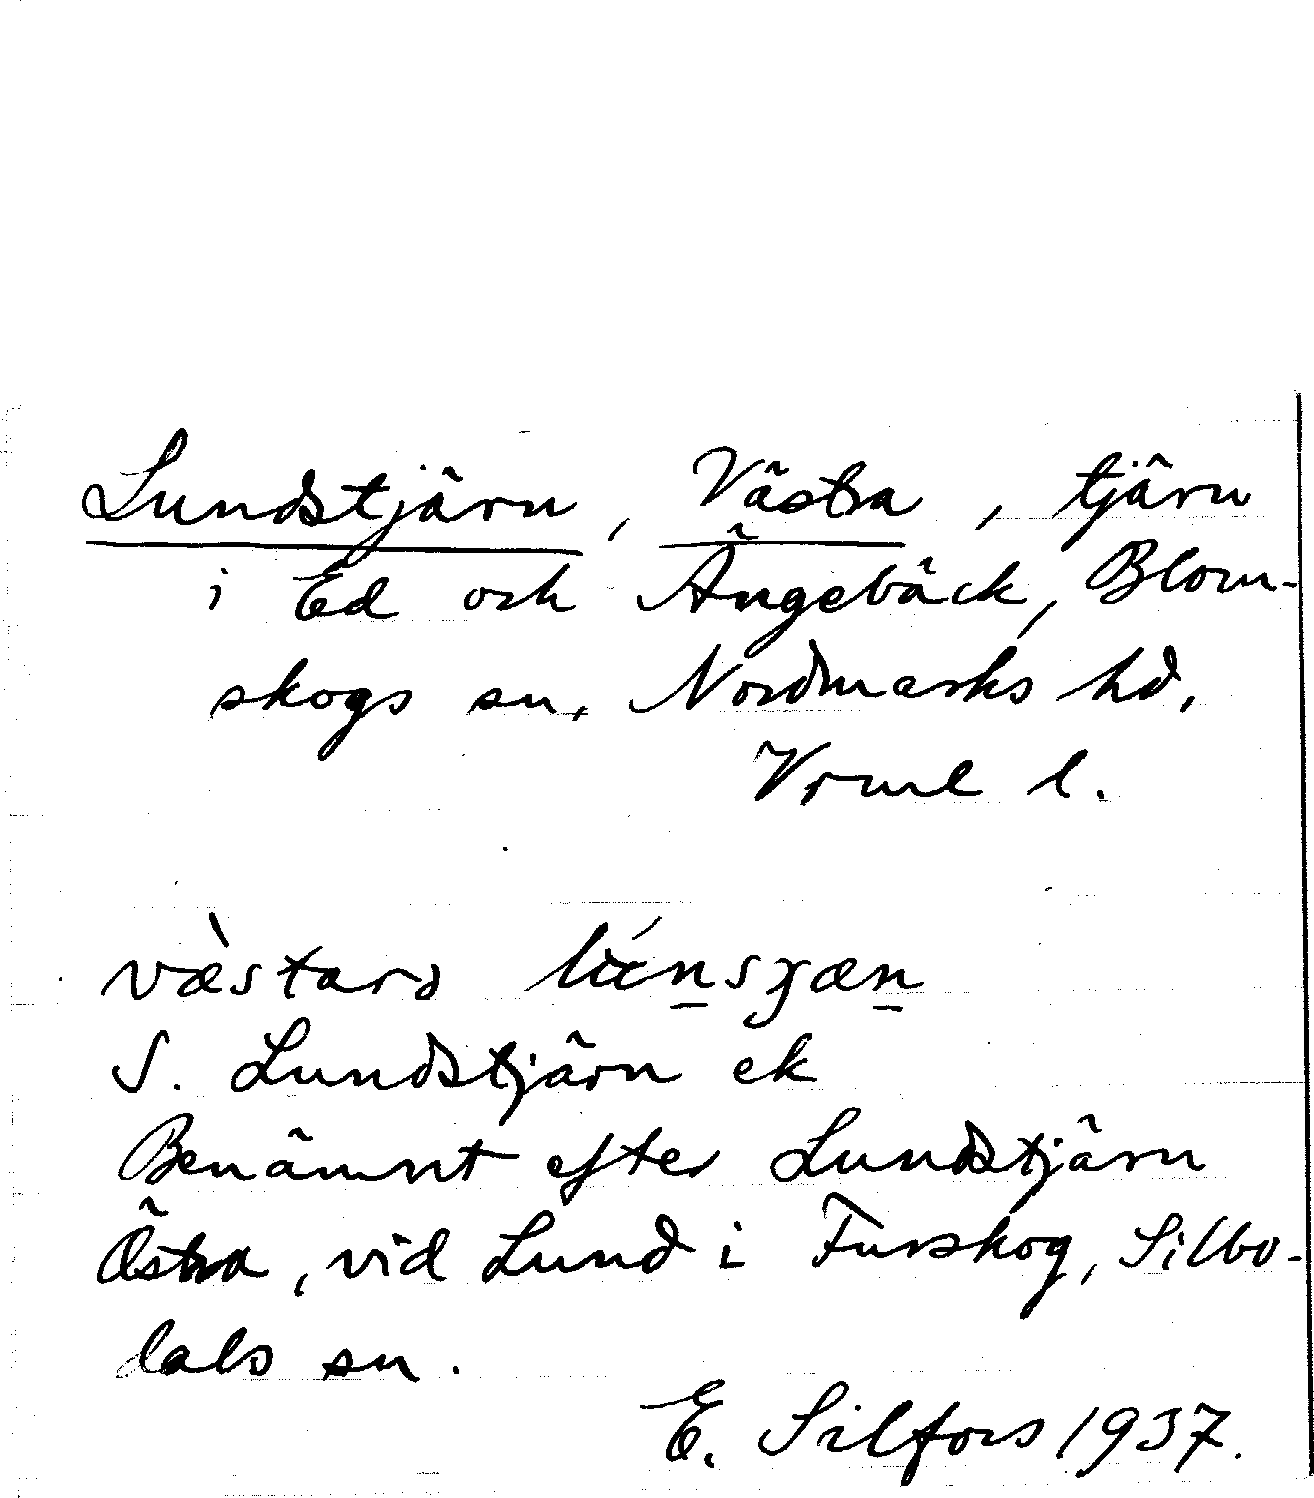 Lundstjärn, Västra, tjärn
i Ed och Ängebäck, Blom-
skogs sn, Nordmarks hd,
Vrml l.
S. Lundstjärn ek
Benämnt efter Lundstjärn
Östra, vid Lund i Furskog, Silbo-
dals sn.
E. Silfors 1937.